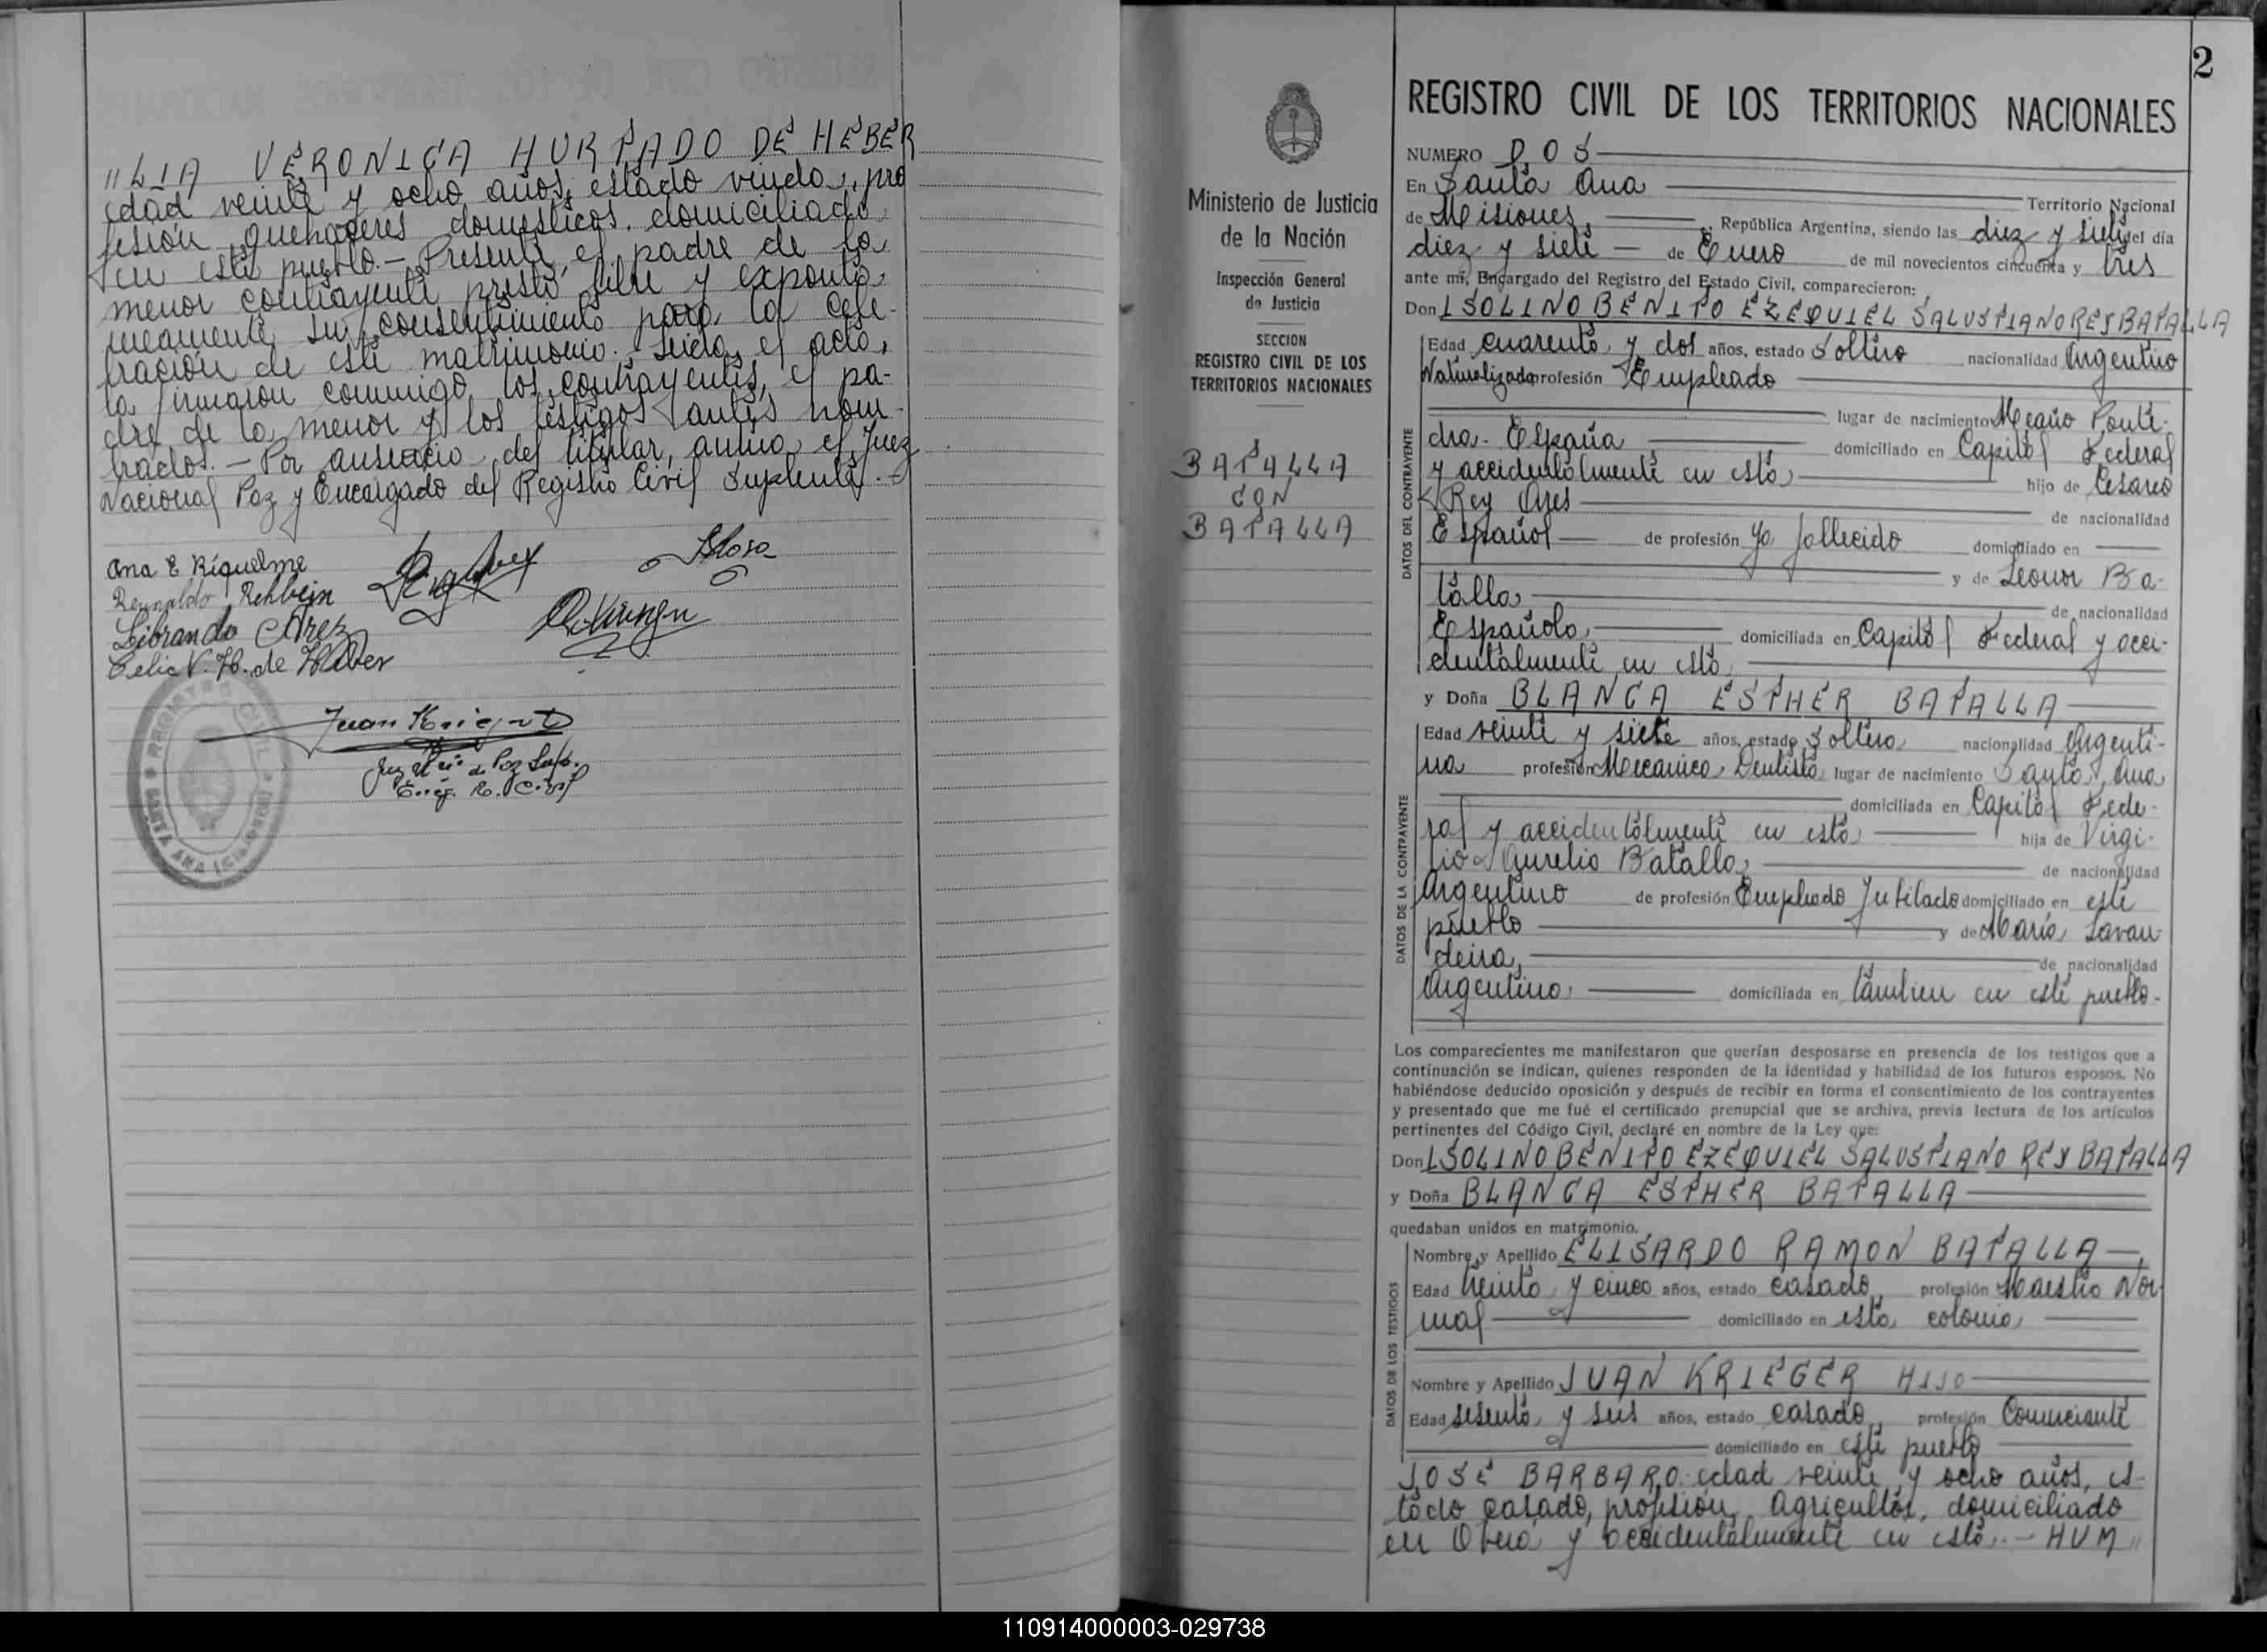 "LIA VERONICA HURTADO DE HEBER
edad veinte y ocho años, estado viuda, pro
fesión quehaceres domesticos, domiciliada
en este pueblo.- Presente el padre de la
menor contrayente prestó libre y espontá
neamente su consentimiento para la cele-
bración de este matrimonio. Leída el acta,
la firmaron conmigo los contrayentes, el pa-
dre de la menor y los testigos antes nom-
brados.- Por ausencia del titular, actúa el Juez
Nacional Paz y Encargado del Registro Civil Suplente.-
Ana E Riquelme
Reynaldo Rehbein
Librando
Celia V. H. de Heber
Juan Krieger
REGISTRO CIVIL
SANTA ANA (Misiones)
2
Ministerio de Justicia
de la Nación
Inspección General
de Justicia
SECCION
REGISTRO CIVIL DE LOS
TERRITORIOS NACIONALES
BATALLA
CON
BATALLA
REGISTRO CIVIL DE LOS TERRITORIOS NACIONALES
NUMERO DOS
En Santa Ana Territorio Nacional
de Misiones, República Argentina, siendo las diez y siete del día
diez y siete de Enero de mil novecientos cincuenta y tres
ante mí, Encargado del Registro del Estado Civil, comparecieron:
Don ISOLINO BENITO EZEQUIEL SALUSTIANO REY BATALLA
DATOS DEL CONTRAYENTE
Edad cuarenta y dos años, estado Soltero nacionalidad Argentino
Naturalizado profesión Empleado
lugar de nacimiento Meaño Ponte-
dra- España domiciliado en Capital Federal
y accidentalmente en esta hijo de Cesareo
Rey Ares de nacionalidad
Español de profesión ya fallecido domiciliado en
y de Leonor Ba-
talla de nacionalidad
Española domiciliada en Capital Federal y acci-
dentalmente en esta
y Doña BLANCA ESTHER BATALLA
DATOS DE LA CONTRAYENTE
Edad veinte y siete años, estado Soltera nacionalidad Argenti-
na profesión Mecanica Dentista lugar de nacimiento Santa Ana
domiciliada en Capital Fede-
ral y accidentalmente en esta hija de Virgi-
lio Aurelio Batalla de nacionalidad
Argentino de profesión Empleado Jubilado domiciliado en este
pueblo y de María Lavan
deira, de nacionalidad
Argentina domiciliada en tambien en este pueblo-
Los comparecientes me manifestaron que querían desposarse en presencia de los testigos que a
continuación se indican, quienes responden de la identidad y habilidad de los futuros esposos. No
habiéndose deducido oposición y después de recibir en forma el consentimiento de los contrayentes
y presentado que me fué el certificado prenupcial que se archiva, previa lectura de los artículos
pertinentes del Código Civil, declaré en nombre de la Ley que:
Don ISOLINO BENITO EZEQUIEL SALUSTIANO REY BATALLA
y Doña BLANCA ESTHER BATALLA
quedaban unidos en matrimonio.
DATOS DE LOS TESTIGOS
Nombre y Apellido ELISARDO RAMON BATALLA
Edad treinta y cinco años, estado casado profesión Maestro Nor
mal domiciliado en esta colonia
Nombre y Apellido JUAN KRIEGER HIJO
Edad sesenta y seis años, estado casado profesión Comerciante
domiciliado en este pueblo
JOSÉ BARBARO: edad veinte y ocho años, es-
tado casado, profesión Agricultor, domiciliado
en Oberá y accidentalmente en esta.- HUM"
110914000003-029738